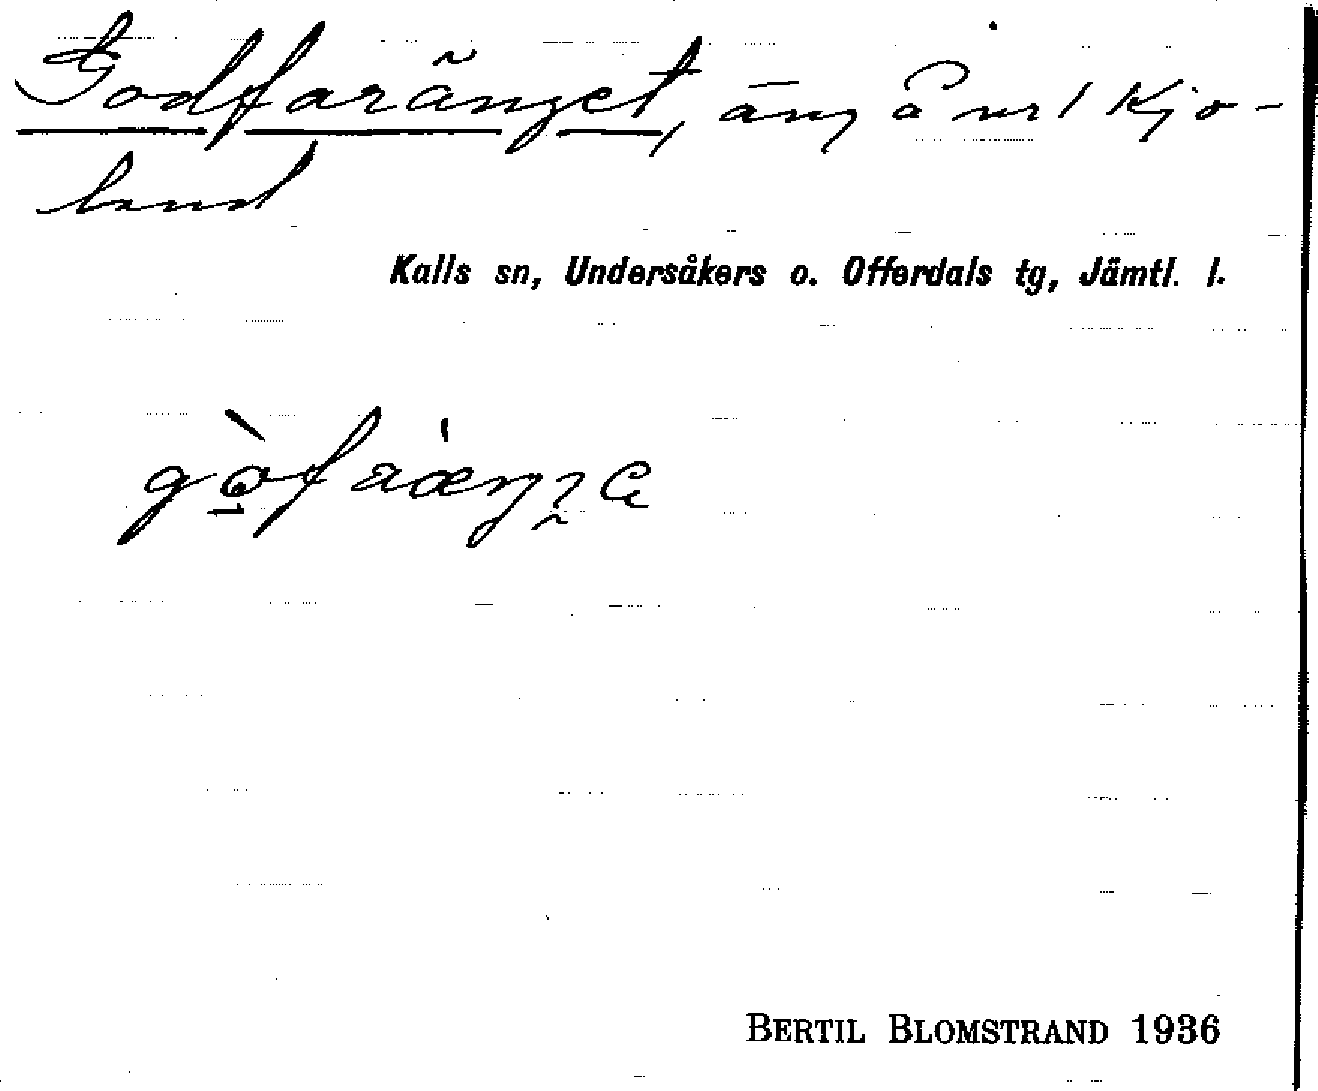 Godfaränget, äng å nr 1 Kjo-
land
Kalls sn, Undersåkers o. Offerdals tg, Jämtl. l.
BERTIL BLOMSTRAND 1936